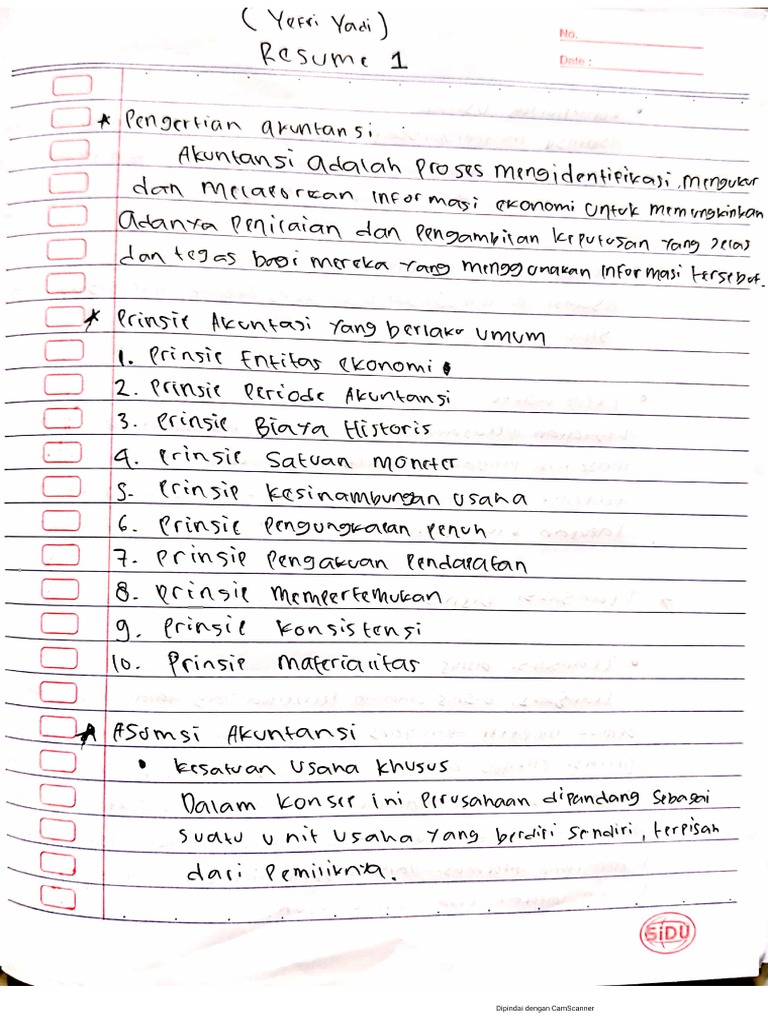 (Yefri Yadi)
Resume 1
No.
Date :
* Pengertian akuntansi
Akuntansi adalah proses mengidentifikasi, mengukur
dan melaporkan informasi ekonomi untuk memungkinkan
Adanya Penilaian dan pengambilan keputusan yang jelas
dan tegas bagi mereka yang menggunakan informasi tersebut.
* Prinsip Akuntasi yang berlaku umum
1. Prinsip Entitas ekonomi
2. Prinsip Periode Akuntansi
3. Prinsip Biaya Historis
4. Prinsip Satuan moneter
5. Prinsip kesinambungan usaha
6. Prinsip Pengungkapan Penuh
7. Prinsip Pengakuan Pendapatan
8. Prinsip mempertemukan
9. Prinsip konsistensi
10. Prinsip materialitas
* Asumsi Akuntansi
• kesatuan usaha khusus
Dalam konsep ini perusahaan dipandang sebagai
suatu unit usaha yang berdiri sendiri, terpisah
dari Pemiliknya.
SiDU
Dipindai dengan CamScanner